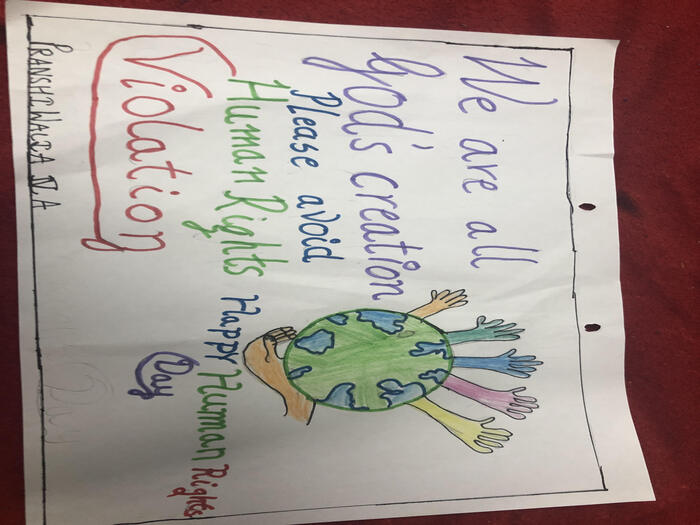 We are all
god's creation
Please avoid
Human Rights
Violation
Happy Human Rights
Day
PRANSHI WALIA IV A